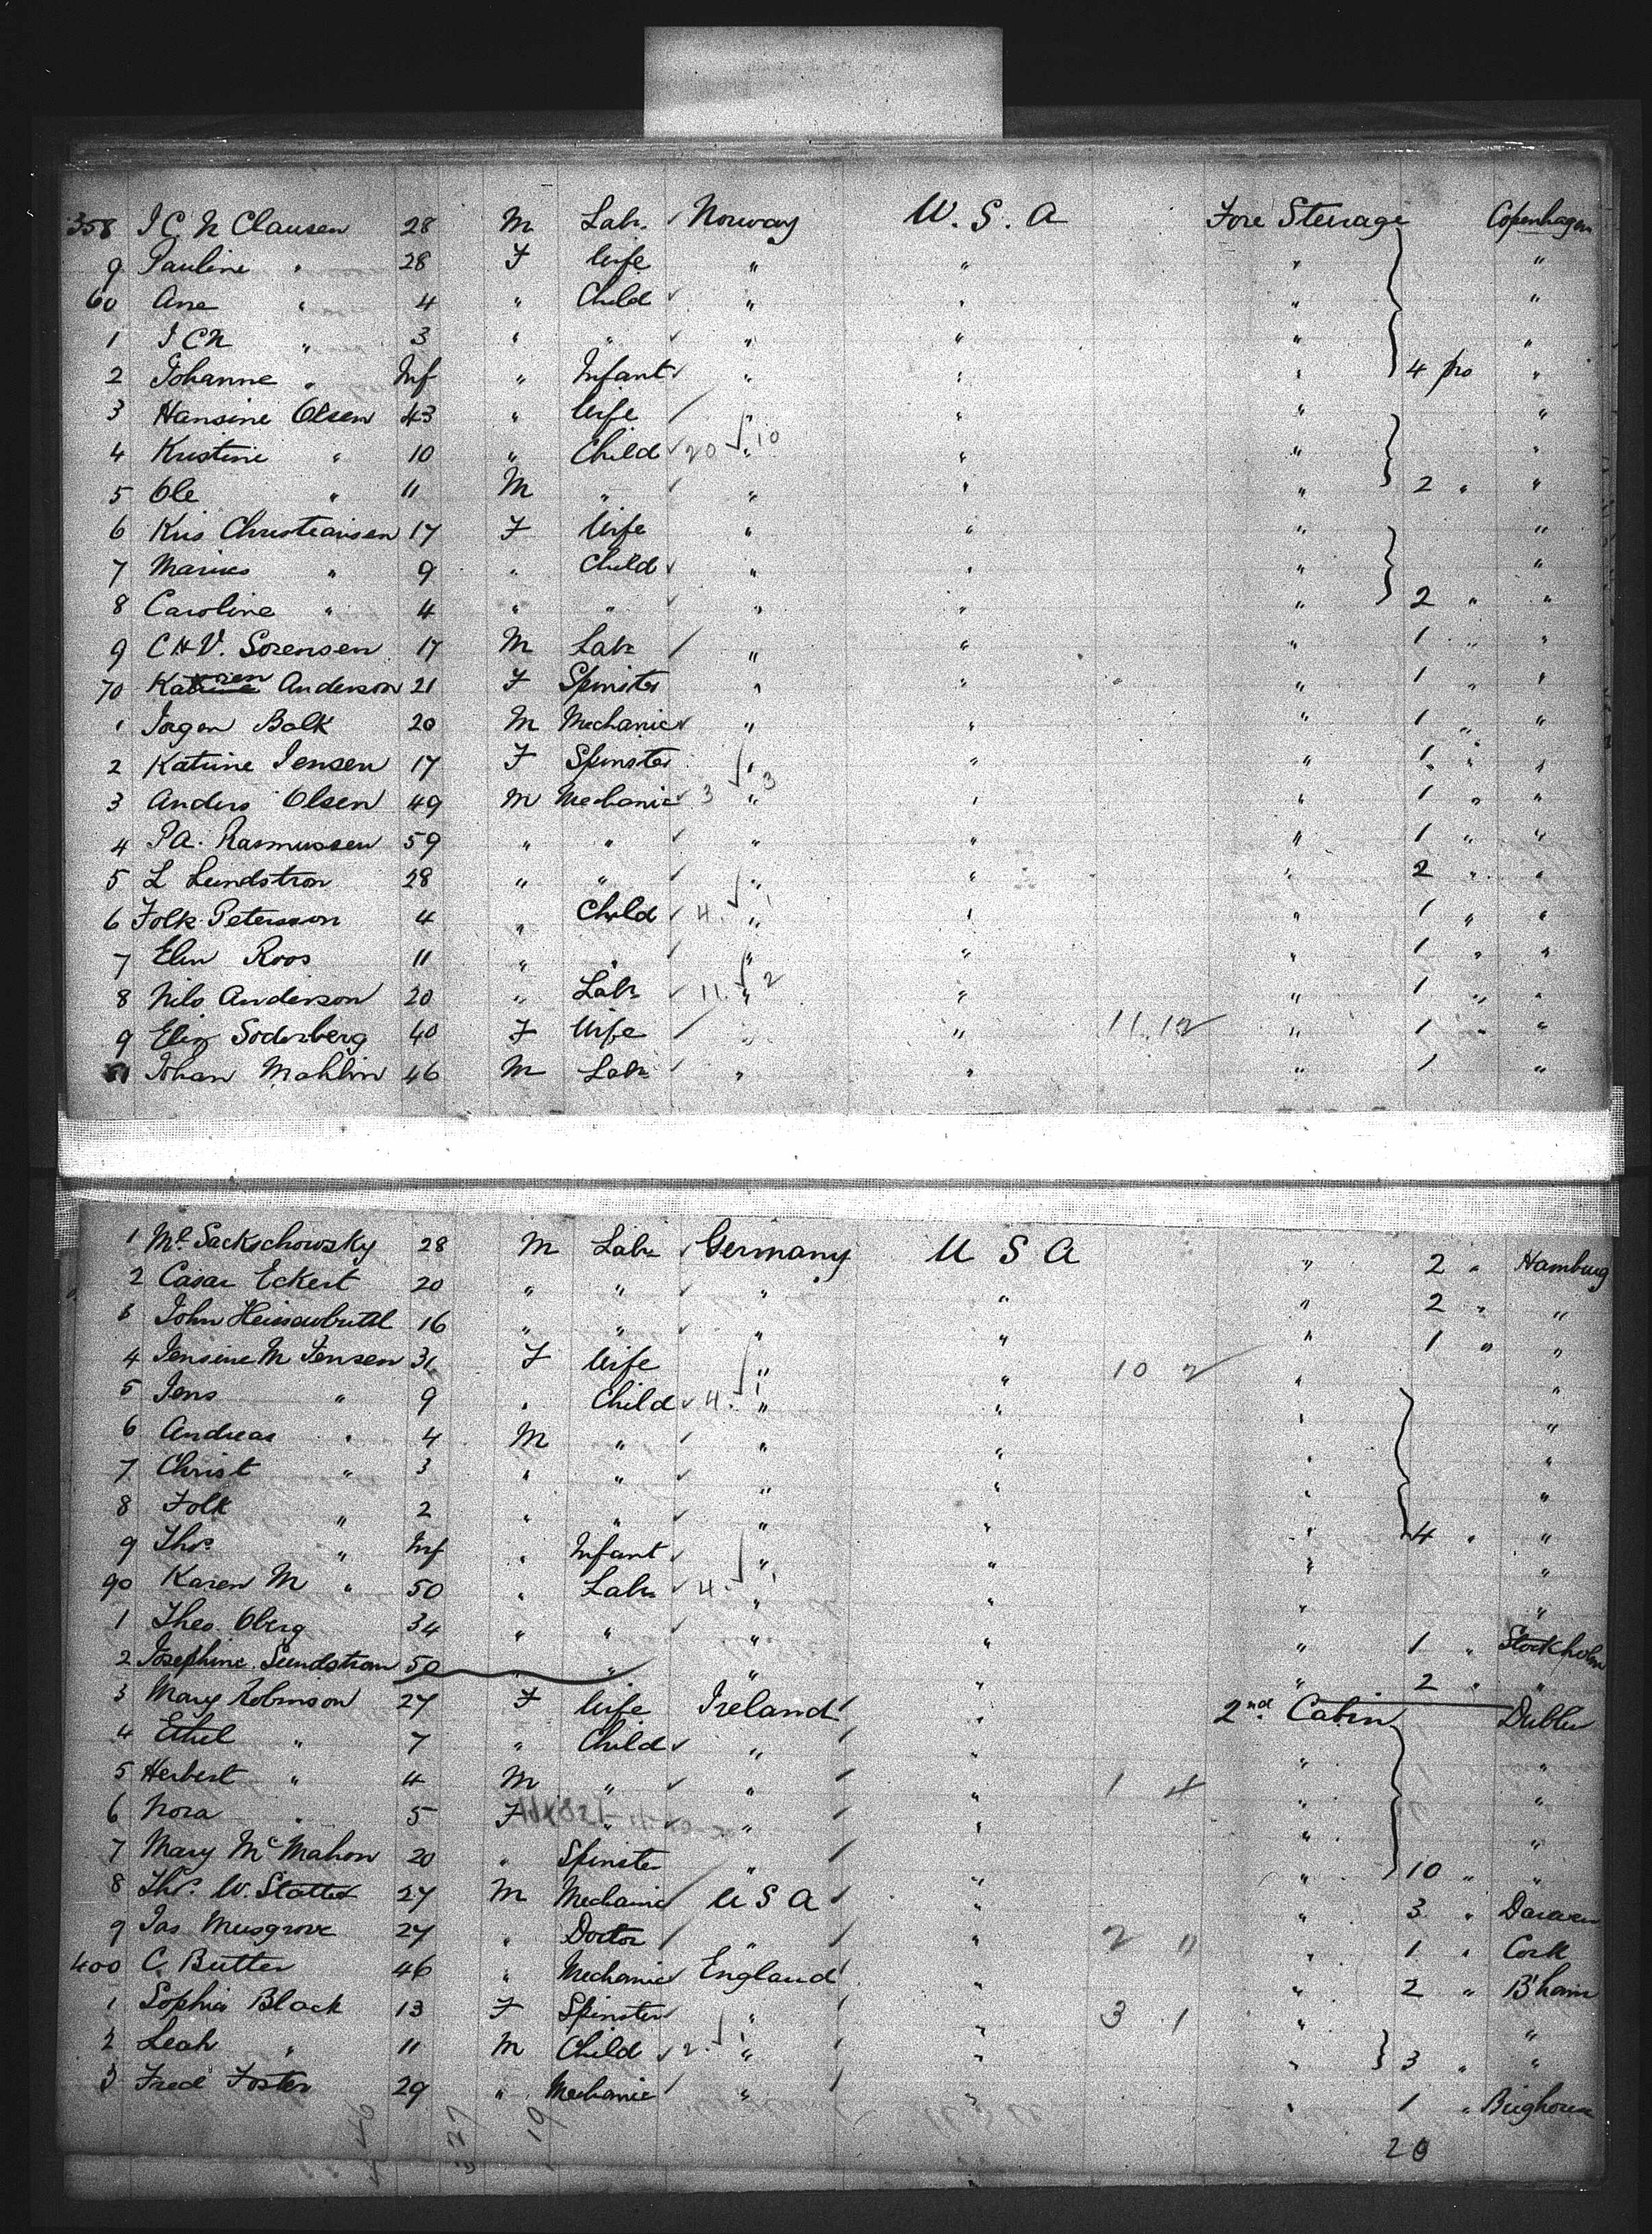 358 J C. N Clausen 28 M Labr. Norway U. S. A Fore Steerage Copenhagen
9 Pauline " 28 F Wife " " " "
60 Ane " 4 " Child " " " "
1 J C N " 3 " " " " " "
2 Johanne " Inf " Infant " " " 4 pro "
3 Hansine Olsen 43 " Wife " " " "
4 Kristine " 10 " Child 20 " 10 " " "
5 Ole " 11 M " " " " 2 " "
6 Kris Christiansen 17 F Wife " " " "
7 Marius " 9 " Child " " " "
8 Caroline " 4 " " " " " 2 " "
9 C H V. Sorensen 17 M Labr " " " 1 " "
70 Karen Anderson 21 F Spinster " " " 1 " "
1 Jorgen Balk 20 M Mechanic " " " 1 " "
2 Katrine Jensen 17 F Spinster " " " 1 " "
3 Anders Olsen 49 M Mechanic 3 " 3 " " 1 " "
4 P A. Rasmussen 59 " " " " " 1 " "
5 L Lundstron 28 " " " " " 2 " "
6 Folk Petersson 4 " Child 4. " 1 " " 1 " "
7 Elin Roos 11 " " " " " 1 " "
8 Nils Anderson 20 " Labr 11. " 2 " " 1 " "
9 Eliz Soderberg 40 F Wife " " 11. 12 " 1 " "
81 Johan Mahlin 46 M Labr " " " 1 "
1 Ml Sackschowsky 28 M Labr Germany U S A " 2 " Hamburg
2 Casar Eckert 20 " " " " " 2 " "
3 John 16 " " " " " 1 " "
4 Jensine M Jensen 31 F Wife " " 10 2 " "
5 Jens " 9 " Child 4. " 1 " " "
6 Andreas " 4 M " " " " "
7 Christ " 3 " " " " " "
8 Folk " 2 " " " " " 4 " "
9 Thos " Inf " Infant " " " "
90 Karen M " 50 " Labr 4. " 1 " " "
1 Theo. Oberg 34 " " " " " 1 " Stockholm
2 Josephine Lundstrom 50 " " " " " 2 " "
3 Mary Robinson 27 F Wife Ireland " 2nd Cabin Dublin
4 Ethel " 7 " Child " " " "
5 Herbert " 4 M " " " 1 4 " "
6 Nora " 5 F " " " " "
7 Mary McMahon 20 " Spinster " " " 10 " "
8 Thos. W. Slatter 27 M Mechanic U S A " " 3 " Darwen
9 Jas Musgrove 27 " Doctor " " 2 11 " 1 " Cork
400 C. Butter 46 " Mechanic England " " 2 " B'ham
1 Sophia Black 13 F Spinster " " 3 1 " "
2 Leah " 11 M Child 2. " 1 " " 3 " "
3 Fred Foster 29 " Mechanic " " " 1 "
20